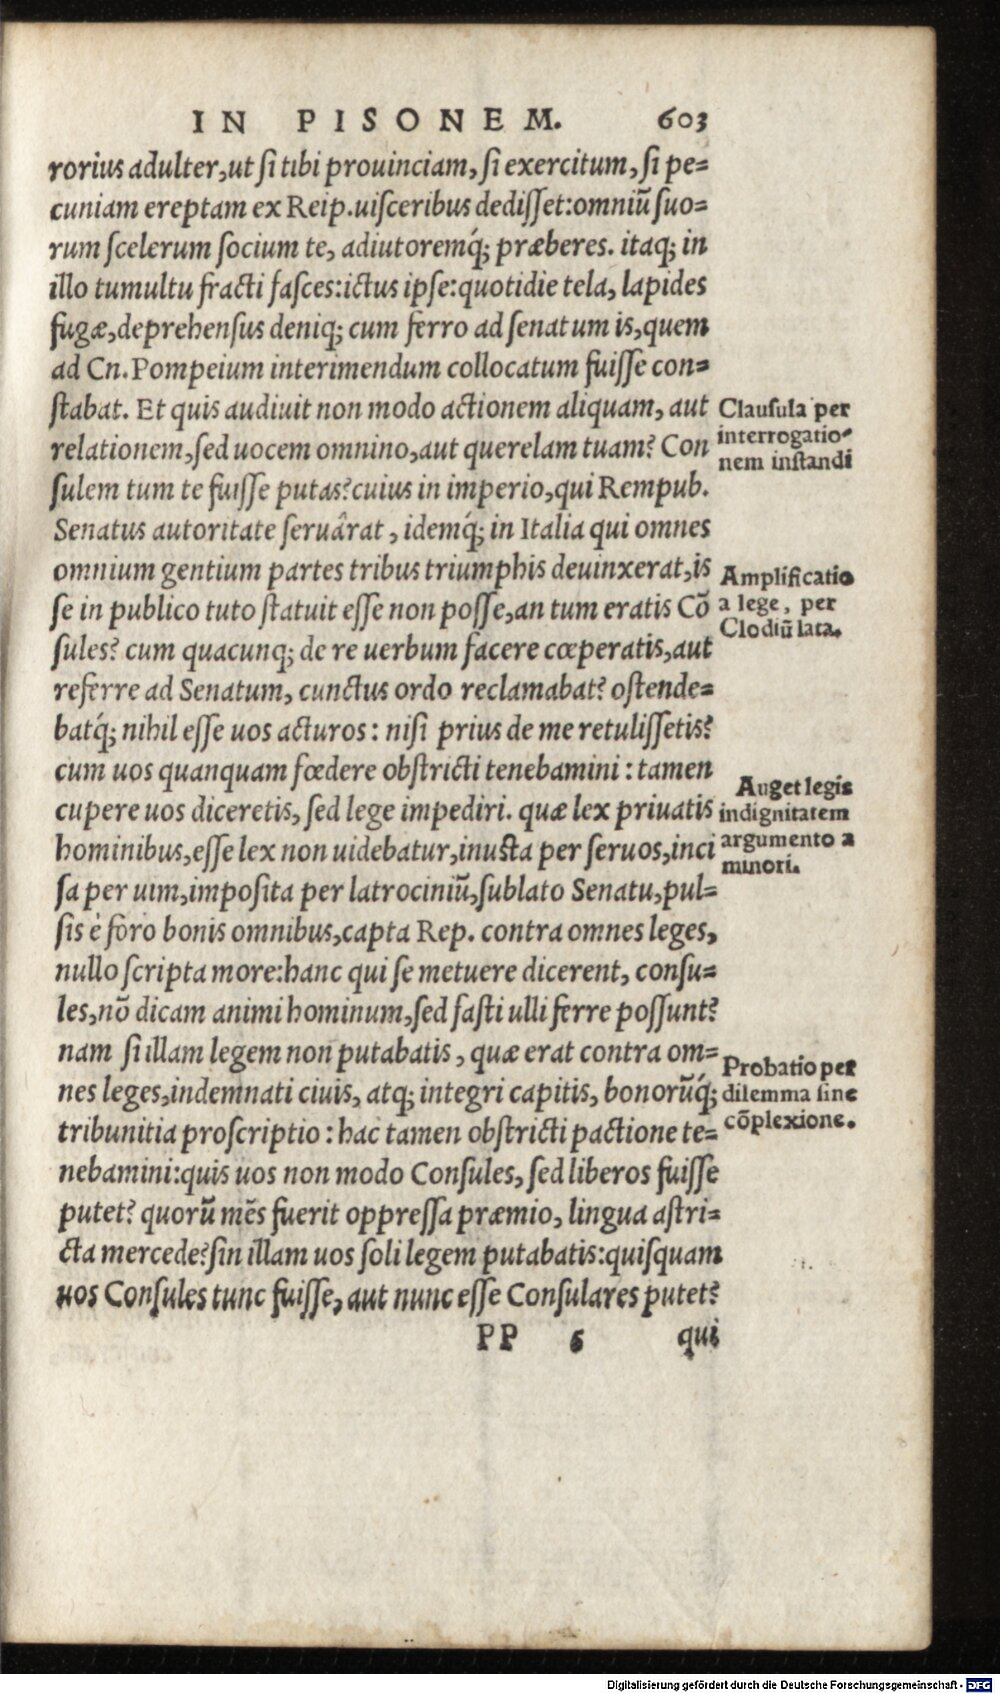 IN PISONEM. 603
rorius adulter,ut si tibi prouinciam, si exercitum, si pe=
cuniam ereptam ex Reip.uisceribus dedisset:omniũ suo=
rum scelerum socium te, adiutoremq́; præberes. itaq; in
illo tumultu fracti fasces:ictus ipse:quotidie tela, lapides
fugæ,deprehensus deniq; cum ferro ad senatum is,quem
ad Cn.Pompeium interimendum collocatum fuisse con=
stabat. Et quis audiuit non modo actionem aliquam, aut
relationem,sed uocem omnino,aut querelam tuam? Con
sulem tum te fuisse putas?cuius in imperio,qui Rempub.
Senatus autoritate seruârat, idemq́; in Italia qui omnes
omnium gentium partes tribus triumphis deuinxerat,is
se in publico tuto statuit esse non posse,an tum eratis Cõ
sules? cum quacunq; de re uerbum facere cœperatis,aut
referre ad Senatum, cunctus ordo reclamabat? ostende=
batq́; nihil esse uos acturos: nisi prius de me retulissetis?
cum uos quanquam fœdere obstricti tenebamini: tamen
cupere uos diceretis, sed lege impediri. quæ lex priuatis
hominibus,esse lex non uidebatur,inusta per seruos,inci
sa per uim,imposita per latrociniũ,sublato Senatu,pul=
sis è foro bonis omnibus,capta Rep. contra omnes leges,
nullo scripta more:hanc qui se metuere dicerent, consu=
les,nõ dicam animi hominum,sed fasti ulli ferre possunt?
nam si illam legem non putabatis, quæ erat contra om=
nes leges,indemnati ciuis, atq; integri capitis, bonorũq́;
tribunitia proscriptio: hac tamen obstricti pactione te=
nebamini:quis uos non modo Consules, sed liberos fuisse
putet? quorũ mẽs fuerit oppressa præmio, lingua astri=
cta mercede?sin illam uos soli legem putabatis:quisquam
uos Consules tunc fuisse, aut nunc esse Consulares putet?
PP 6 qui
Clausula per
interrogatio=
nem instandi
Amplificatio
a lege, per
Clodiũ lata.
Auget legis
indignitatem
argumento a
minori.
Probatio per
dilemma sine
cõplexione.
Digitalisierung gefördert durch die Deutsche Forschungsgemeinschaft - DFG